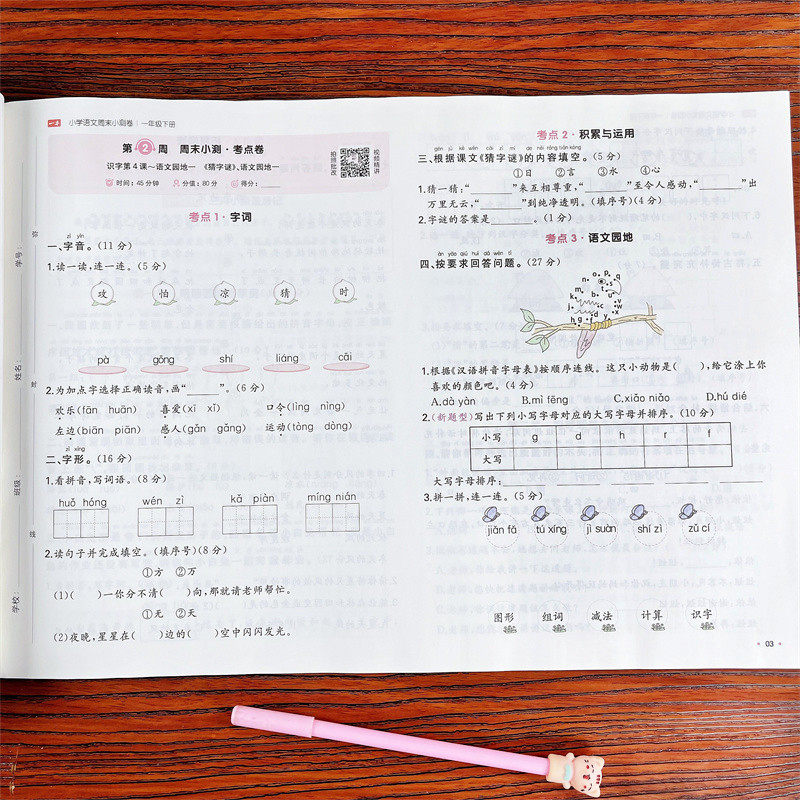 小学语文周末小测卷 一年级下册
第2周 周末小测·考点卷
识字第4课～语文园地一 《猜字谜》、语文园地一
时间：45分钟 分值：80分 得分：
拍照批改
视频精讲
学号：
姓名：
班级：
学校：
弥
封
线
考点1·字词
zì yīn
一、字音。(11分)
1.读一读，连一连。(5分)
怕 凉 猜 时
pà gōng shí liáng cāi
2.为加点字选择正确读音，画“ ”。(6分)
欢乐(fān huān) 喜爱(xǐ xī) 口令(lìng nìng)
左边(biān piān) 感人(gǎn gǎng) 运动(tòng dòng)
zì xíng
二、字形。(16分)
1.看拼音，写词语。(8分)
huǒ hóng wén zì kǎ piàn míng nián
2.读句子并完成填空。(填序号)(8分)
①方 ②万
(1)( )一你分不清( )向，那就请老师帮忙。
①无 ②天
(2)夜晚，星星在( )边的( )空中闪闪发光。
考点2·积累与运用
三、根据课文《猜字谜》的内容填空。(5分)
①日 ②言 ③水 ④心
1.猜一猜：“ ”来互相尊重，“ ”至令人感动，“ ”出
万里无云，“ ”到纯净透明。(填序号)(4分)
2.字谜的答案是 。(1分)
考点3·语文园地
àn yāo qiú huí dá wèn tí
四、按要求回答问题。(27分)
1.根据《汉语拼音字母表》按顺序连线。这只小动物是( )，给它涂上你
喜欢的颜色吧。(4分)
A.dà yàn B.mì fēng C.xiǎo niǎo D.hú dié
2.(新题型)写出下列小写字母对应的大写字母并排序。(10分)
小写 g d h r f
大写
大写字母排序：
3.拼一拼，连一连。(5分)
jiǎn fǎ tú xíng jì suàn shí zì zǔ cí
图形 组词 减法 计算 识字
03